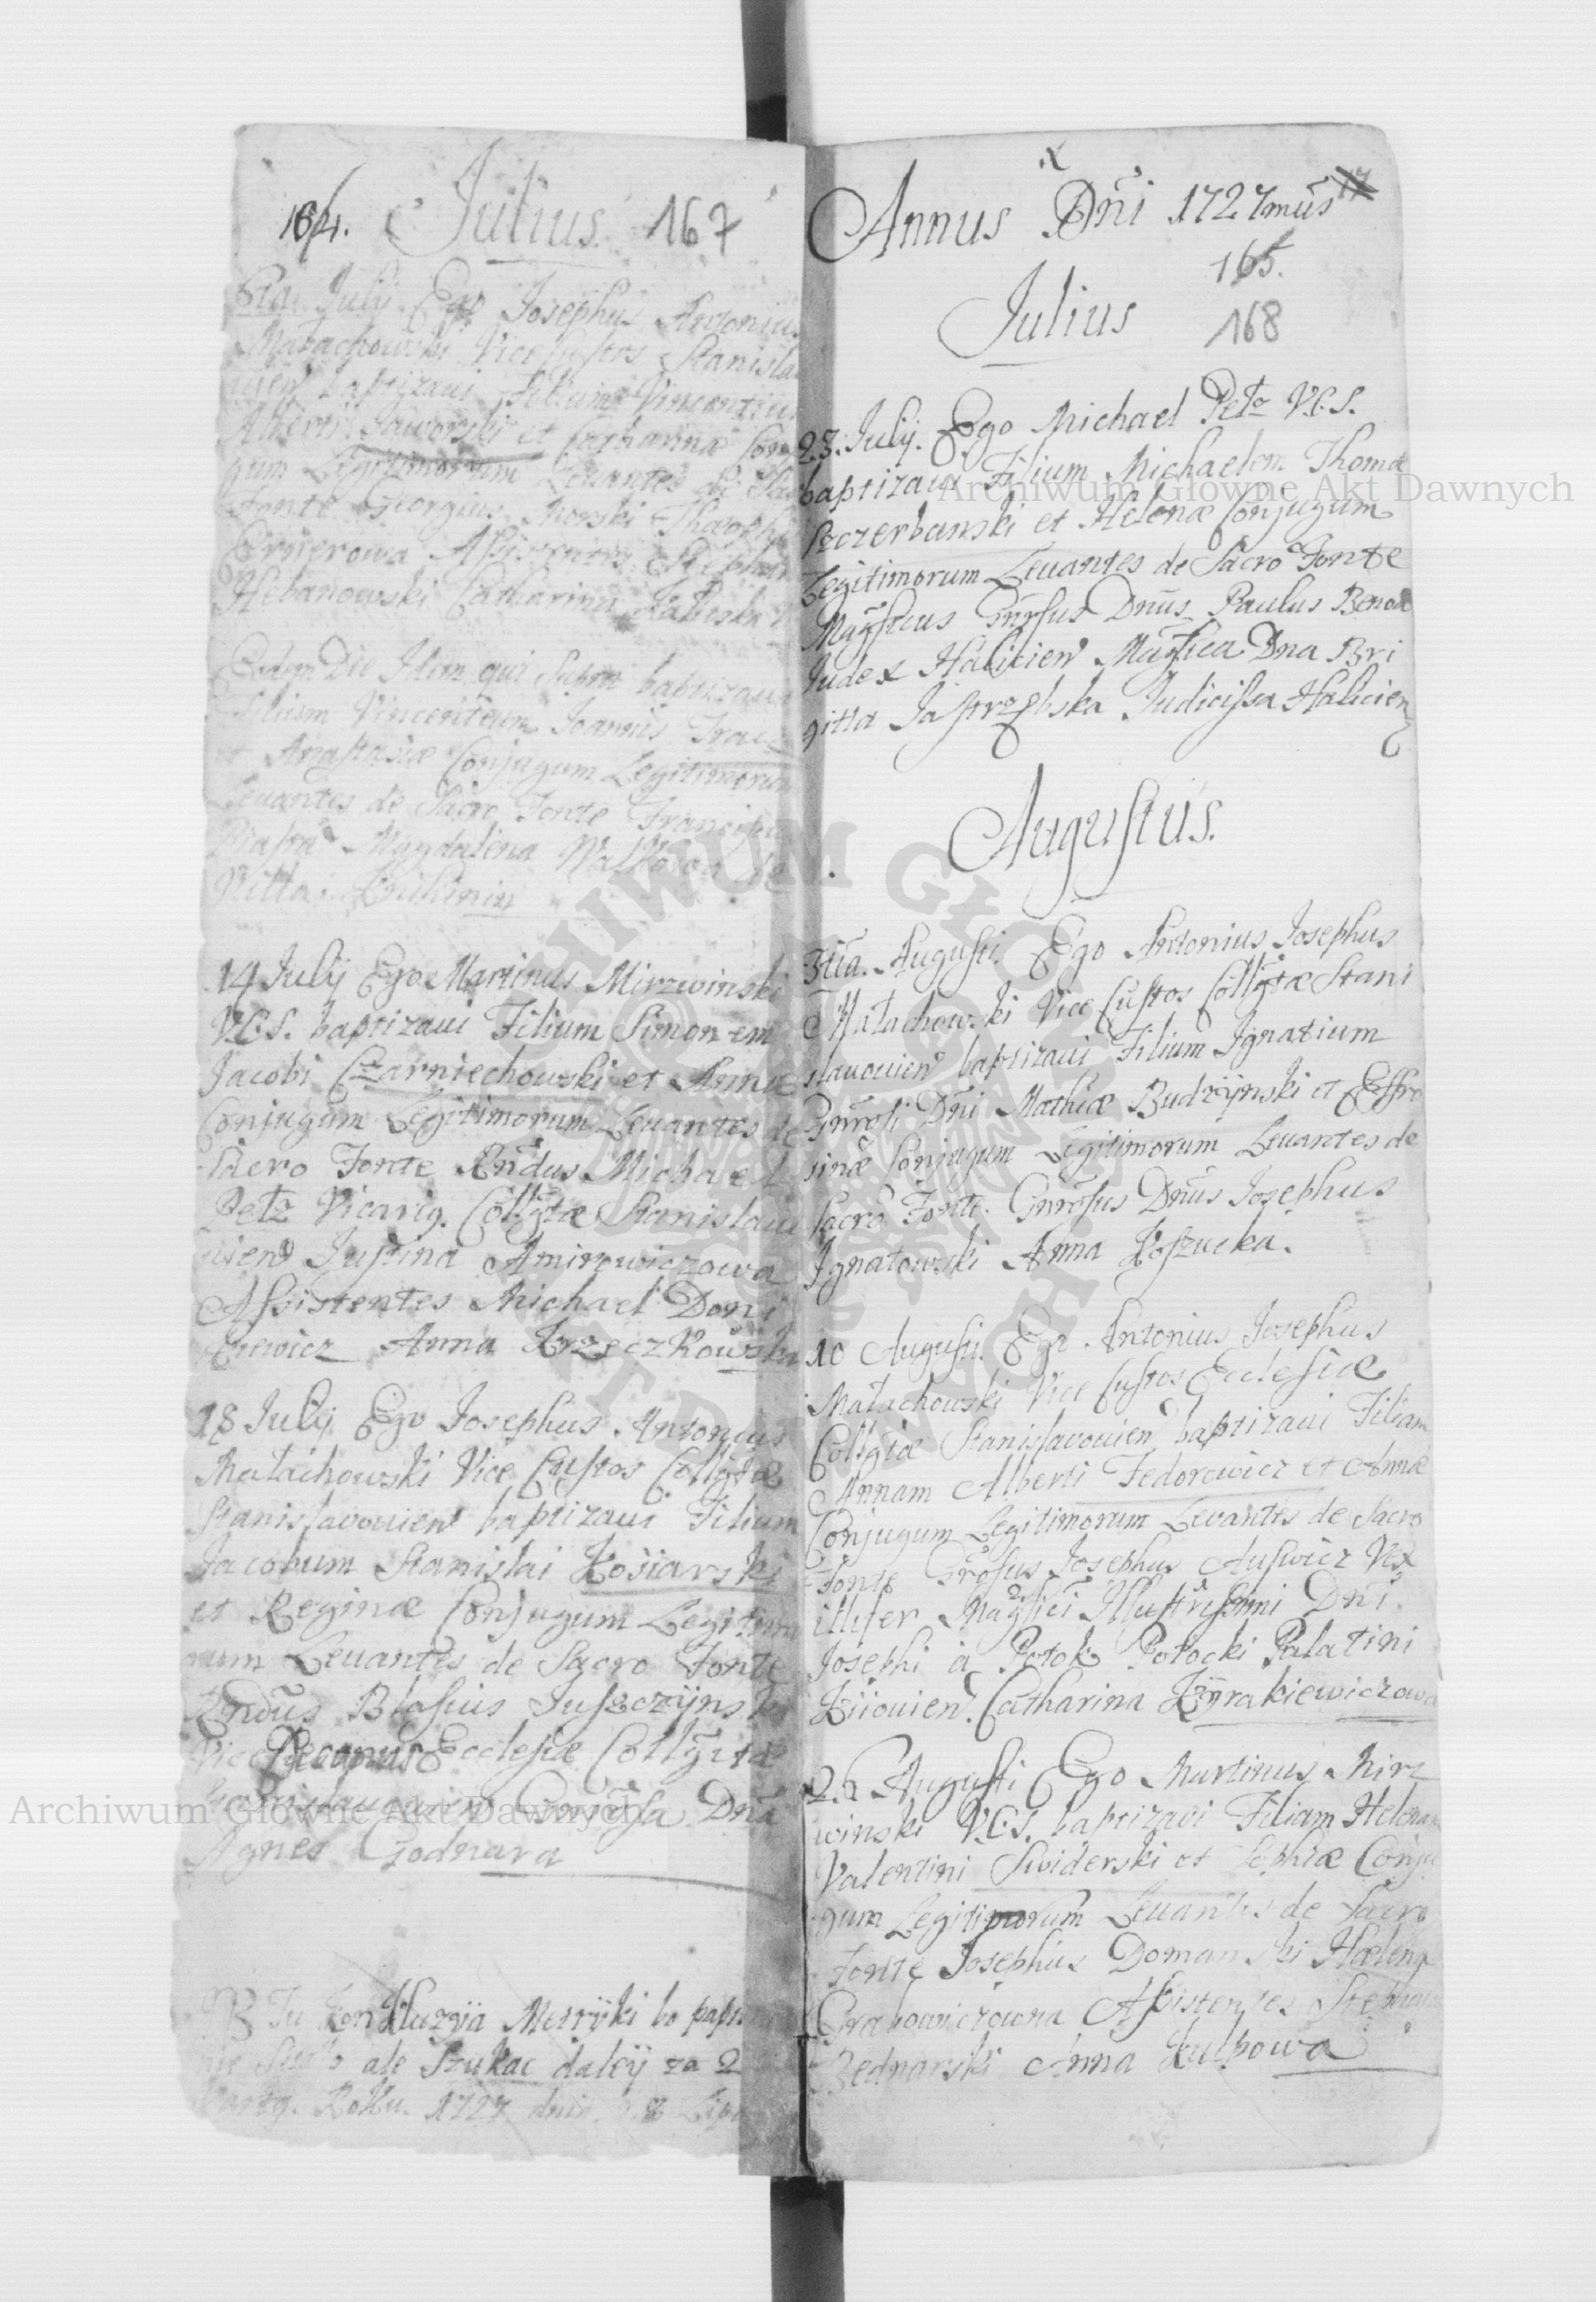 164. Julius 167
6ta July Ego Josephus Antonius
Małachowski Vice Custos Stanisla
uien baptizaui Filium Vincentiu
Alberti Jaworski et Catharinæ Conju
gum Legitimorum Leuantes de Sac
Fonte Georgius Morski
Assistentes Stephan
Hebanowski Catharina
Eodem Die Idem qui Supra baptizaui
Filium Vincentium Joannis
et Anastasiæ Conjugum Legitimorum
Leuantes de Sacro Fonte Francisc
Magdalena de
Villa
14 July Ego Martinus Mirzwinski
V.C.S. baptizaui Filium Simonem
Jacobi Czarniechowski et Annæ
Conjugum Legitimorum Leuantes de
Sacro Fonte Rndus Michael
Petz Vicarig. Collgtæ Stanislauo
uien Justina Amirowiczowa
Assistentes Michael Doni
kiewicz Anna Krzeczkowska
18 July Ego Josephus Antonius
Małachowski Vice Custos Collgtæ
Stanislavouien baptizaui Filium
Jacobum Stanislai Kosiarski
et Reginæ Conjugum Legitimo
rum Leuantes de Sacro Fonte
Rndus Blasius Juszczÿnski
Vice Decanus Ecclesiæ Collgtæ
Stanislauouien Gnrosa Dna
Agnes Godnara
Tu Konkluzÿa Metrÿki bo papi
ale Szukac daleÿ za 2
Kartg. Roku. 1727 dnia 8 Lip
Annus Dñi 1727mus 17
165.
Julius 168
23. July. Ego Michael Petz V.C.S.
baptizaui Filium Michaelem Thomæ
Szczerbanski et Helenæ Conjugum
Legitimorum Leuantes de Sacro Fonte
Mag̃ficus Gñrosus Dñus Paulus Benoe
Judex Halicien Mag̃fica Dna Bri
gitta Jastrzębska Judicissa Halicien
Augustus.
3tia. Augusti. Ego Antonius Josephus
Małachowski Vice Custos Collgtæ Stani
slauouien baptizaui Filium Ignatium
Gnrosi Dñi Mathiæ Budzÿnski et Effro
sinæ Conjugum Legitimorum Leuantes de
Sacro Fonte. Gnrosus Dñus Josephus
Ignatowski Anna Koszucka.
10 Augusti. Ego Antonius Josephus
Małachowski Vice Custos Ecclesiæ
Collgtæ Stanislavouien baptizaui Filiam
Annam Alberti Fedorowicz et Annæ
Conjugum Legitimorum Levantes de Sacro
Fonte Grosus Josephus Auswicz Vex
illifer Mag̃fici Illustrissimi Dñi
Josephi à Potok Potocki Palatini
Kiiouien. Catharina Kÿrakiewiczowa
26 Augusti Ego Martinus Mirz
winski V.C.S. baptizavi Filiam Helenam
Valentini Swiderski et Sophiæ Conju
gum Legitimorum Leuantes de Sacro
Fonte Josephus Domanski Hælena
Grabowiczowna Assistentes Stephan
Bednarski Anna Kulpowa
Archiwum Główne Akt Dawnych
Archiwum Główne Akt Dawnych